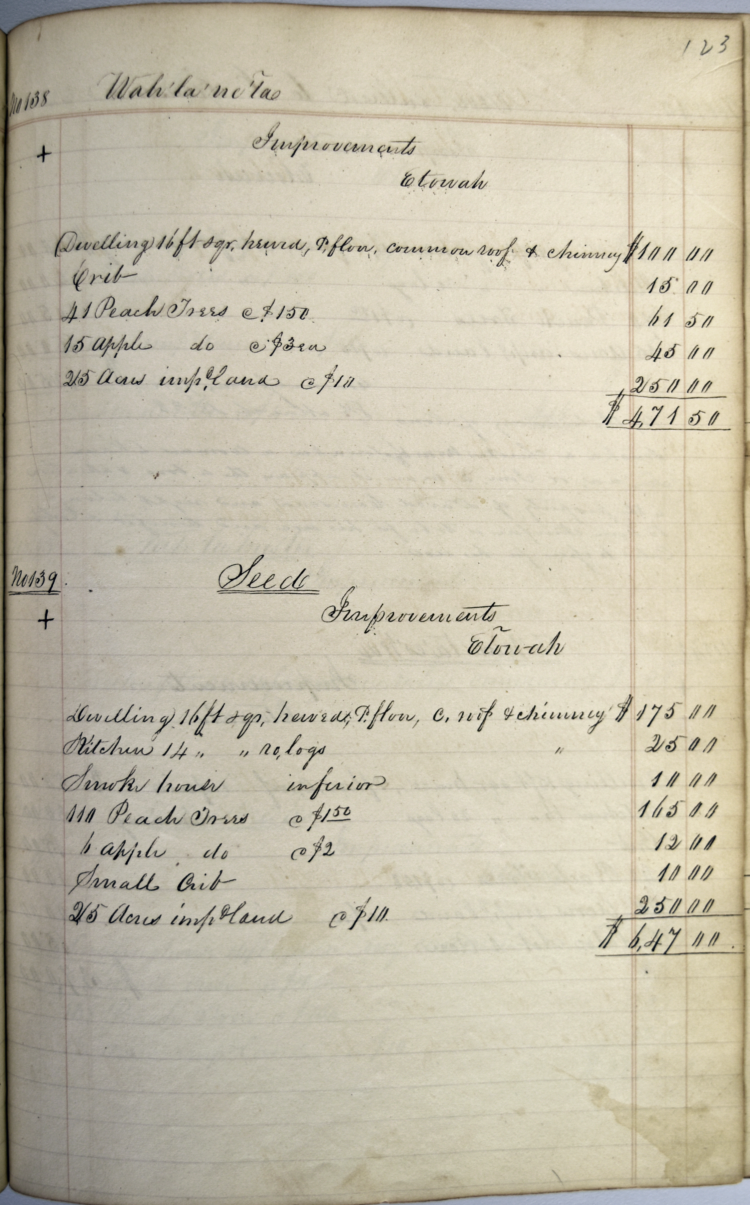 123
No 138 Wah'la'ne'ta
+ Improvements
Etowah
Dwelling 16 ft sqr, hewed, P. floor, common roof & chimney $100 00
Crib 15 00
41 Peach Trees @ $1 50 61 50
15 apple do @ $3 ea 45 00
25 Acres imp.d land @ $10 250 00
$ 471 50
No 139. Seed
+ Improvements
Etowah
Dwelling 16 ft sqr, hewed, P. floor, C. roof & chimney $ 175 00
Kitchen 14 " " ro, logs " 25 00
Smoke house inferior 10 00
110 Peach Trees @ $1 50 165 00
6 apple do @ $2 12 00
Small Crib 10 00
25 Acres imp.d land @ $10 250 00
$ 6,47 00